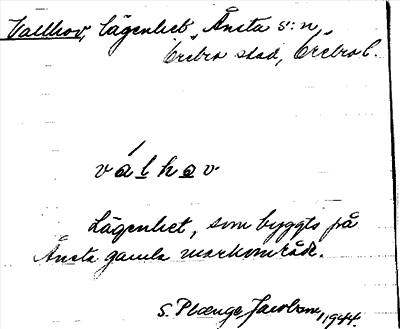 Vallhov, lägenhet, Ånsta s:n,
Örebro stad, Örebro l.
válhov.
Lägenhet, som byggts på
Ånsta gamla markområde.
S. Plænge Jacobson, 1944.